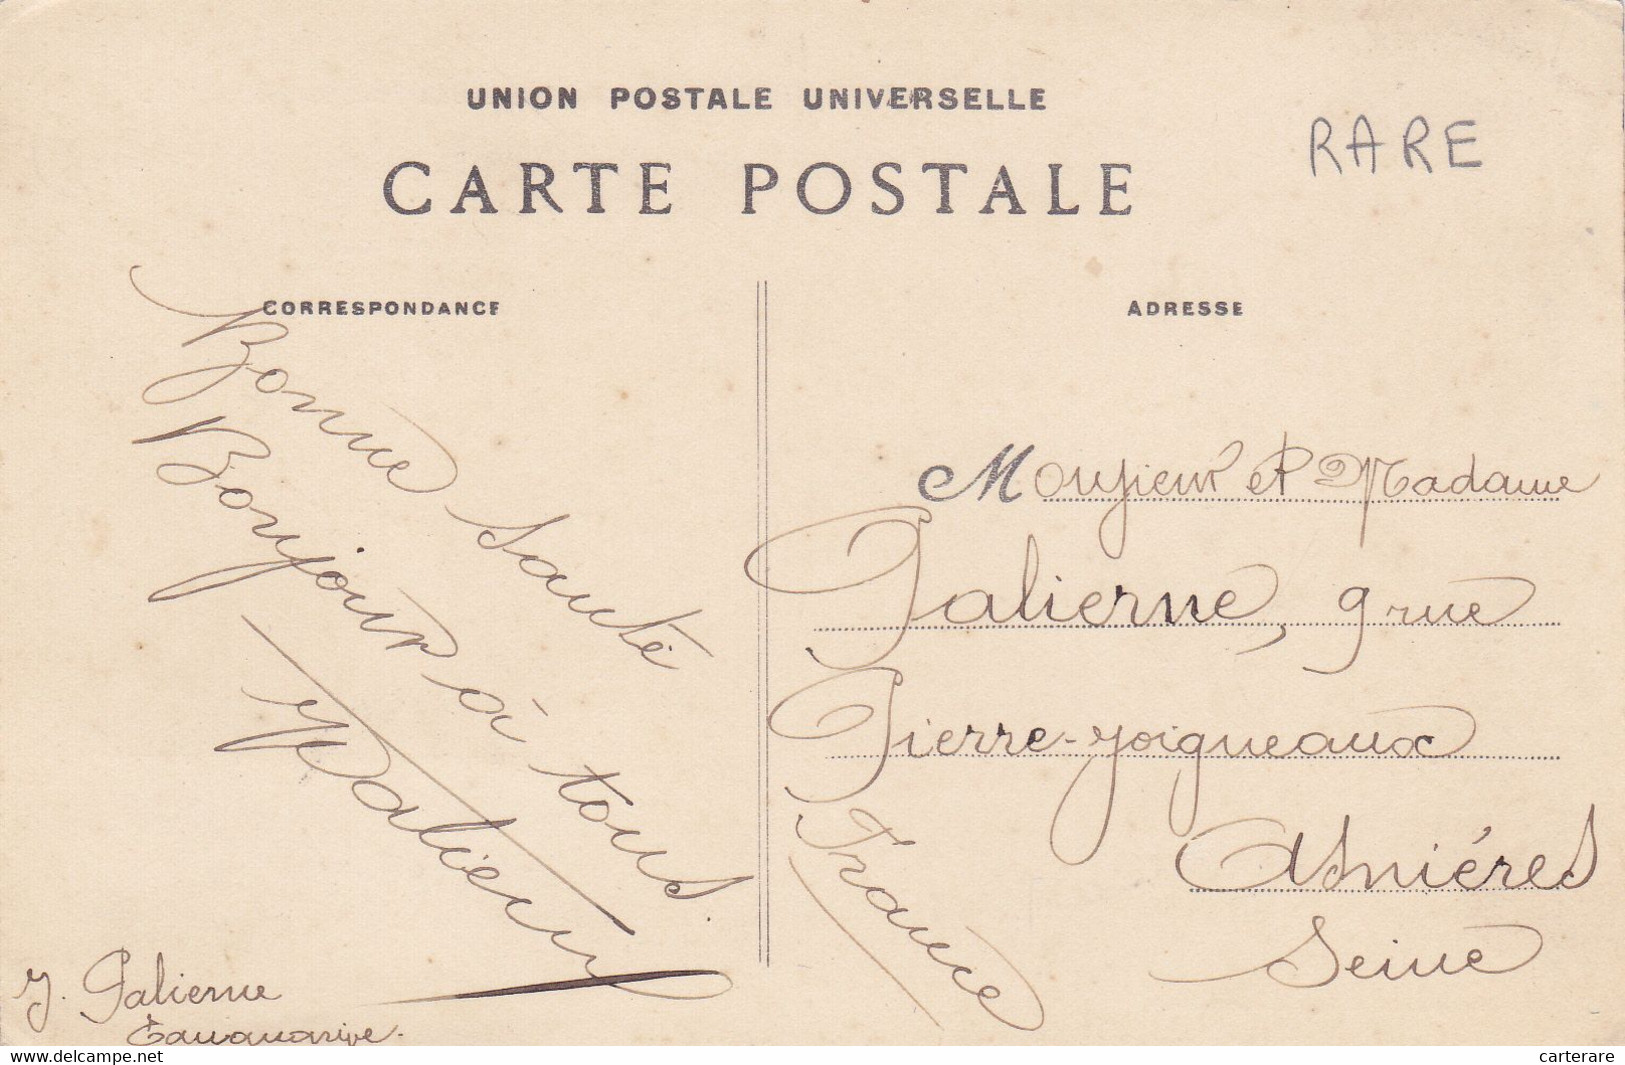 UNION POSTALE UNIVERSELLE
CARTE POSTALE
RARE
CORRESPONDANCE
ADRESSE
Bonne santé
Bonjour à tous.
Palierne
J. Palierne
Tananarive.
Monsieur et Madame
Palierne, 9 rue
Pierre-Joigneaux
Asniéres
Seine
France
https://www.delcampe.net
carterare